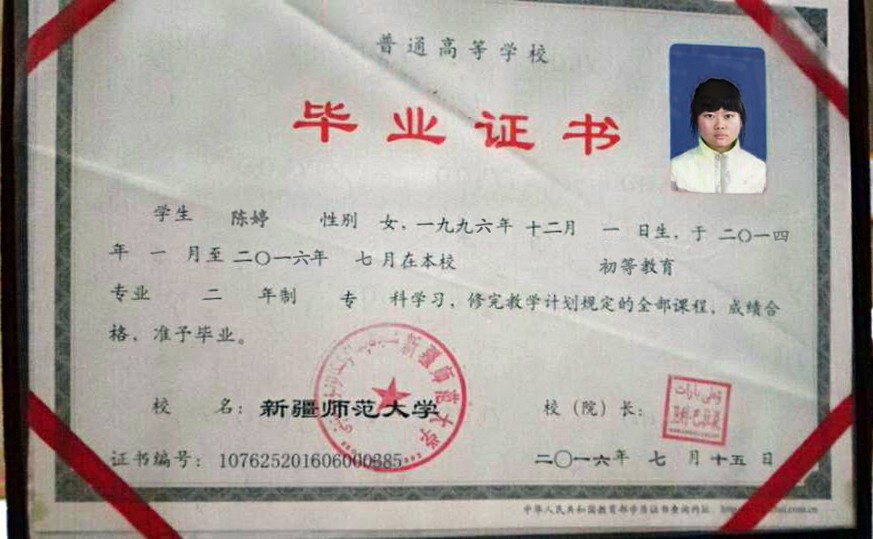 普通高等学校
毕业证书
学生 陈婷 性别 女，一九九六年 十二月 一 日生，于 二〇一四
年 一 月至 二〇一六年 七 月在本校 初等教育
专业 二 年制 专 科学习，修完教学计划规定的全部课程，成绩合
格，准予毕业。
新疆师范大学
校 名：新疆师范大学 校（院）长：
证书编号：107625201606000385 二〇一六年 七 月 十五 日
中华人民共和国教育部学历证书查询网址：